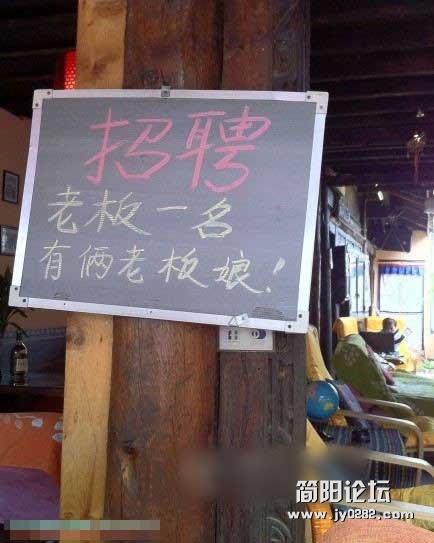 招聘
老板一名
有俩老板娘!
简阳论坛
www.jy0282.com